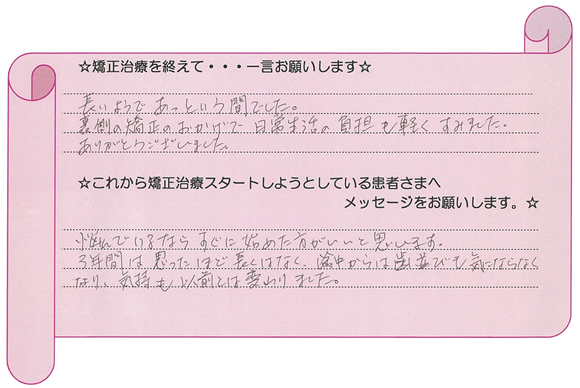 ☆矯正治療を終えて・・・一言お願いします☆
長いようであっという間でした。
裏側の矯正のおかげで日常生活の負担も軽くすみました。
ありがとうございました。
☆これから矯正治療スタートしようとしている患者さまへ
メッセージをお願いします。☆
悩んでいるならすぐに始めた方がいいと思います。
3年間は思ったほど長くはなく、途中からは歯並びも気にならなく
なり、気持も以前とは変わりました。